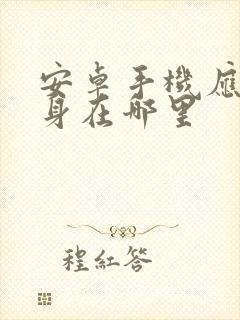 安卓手機應
身在哪里
程紅答